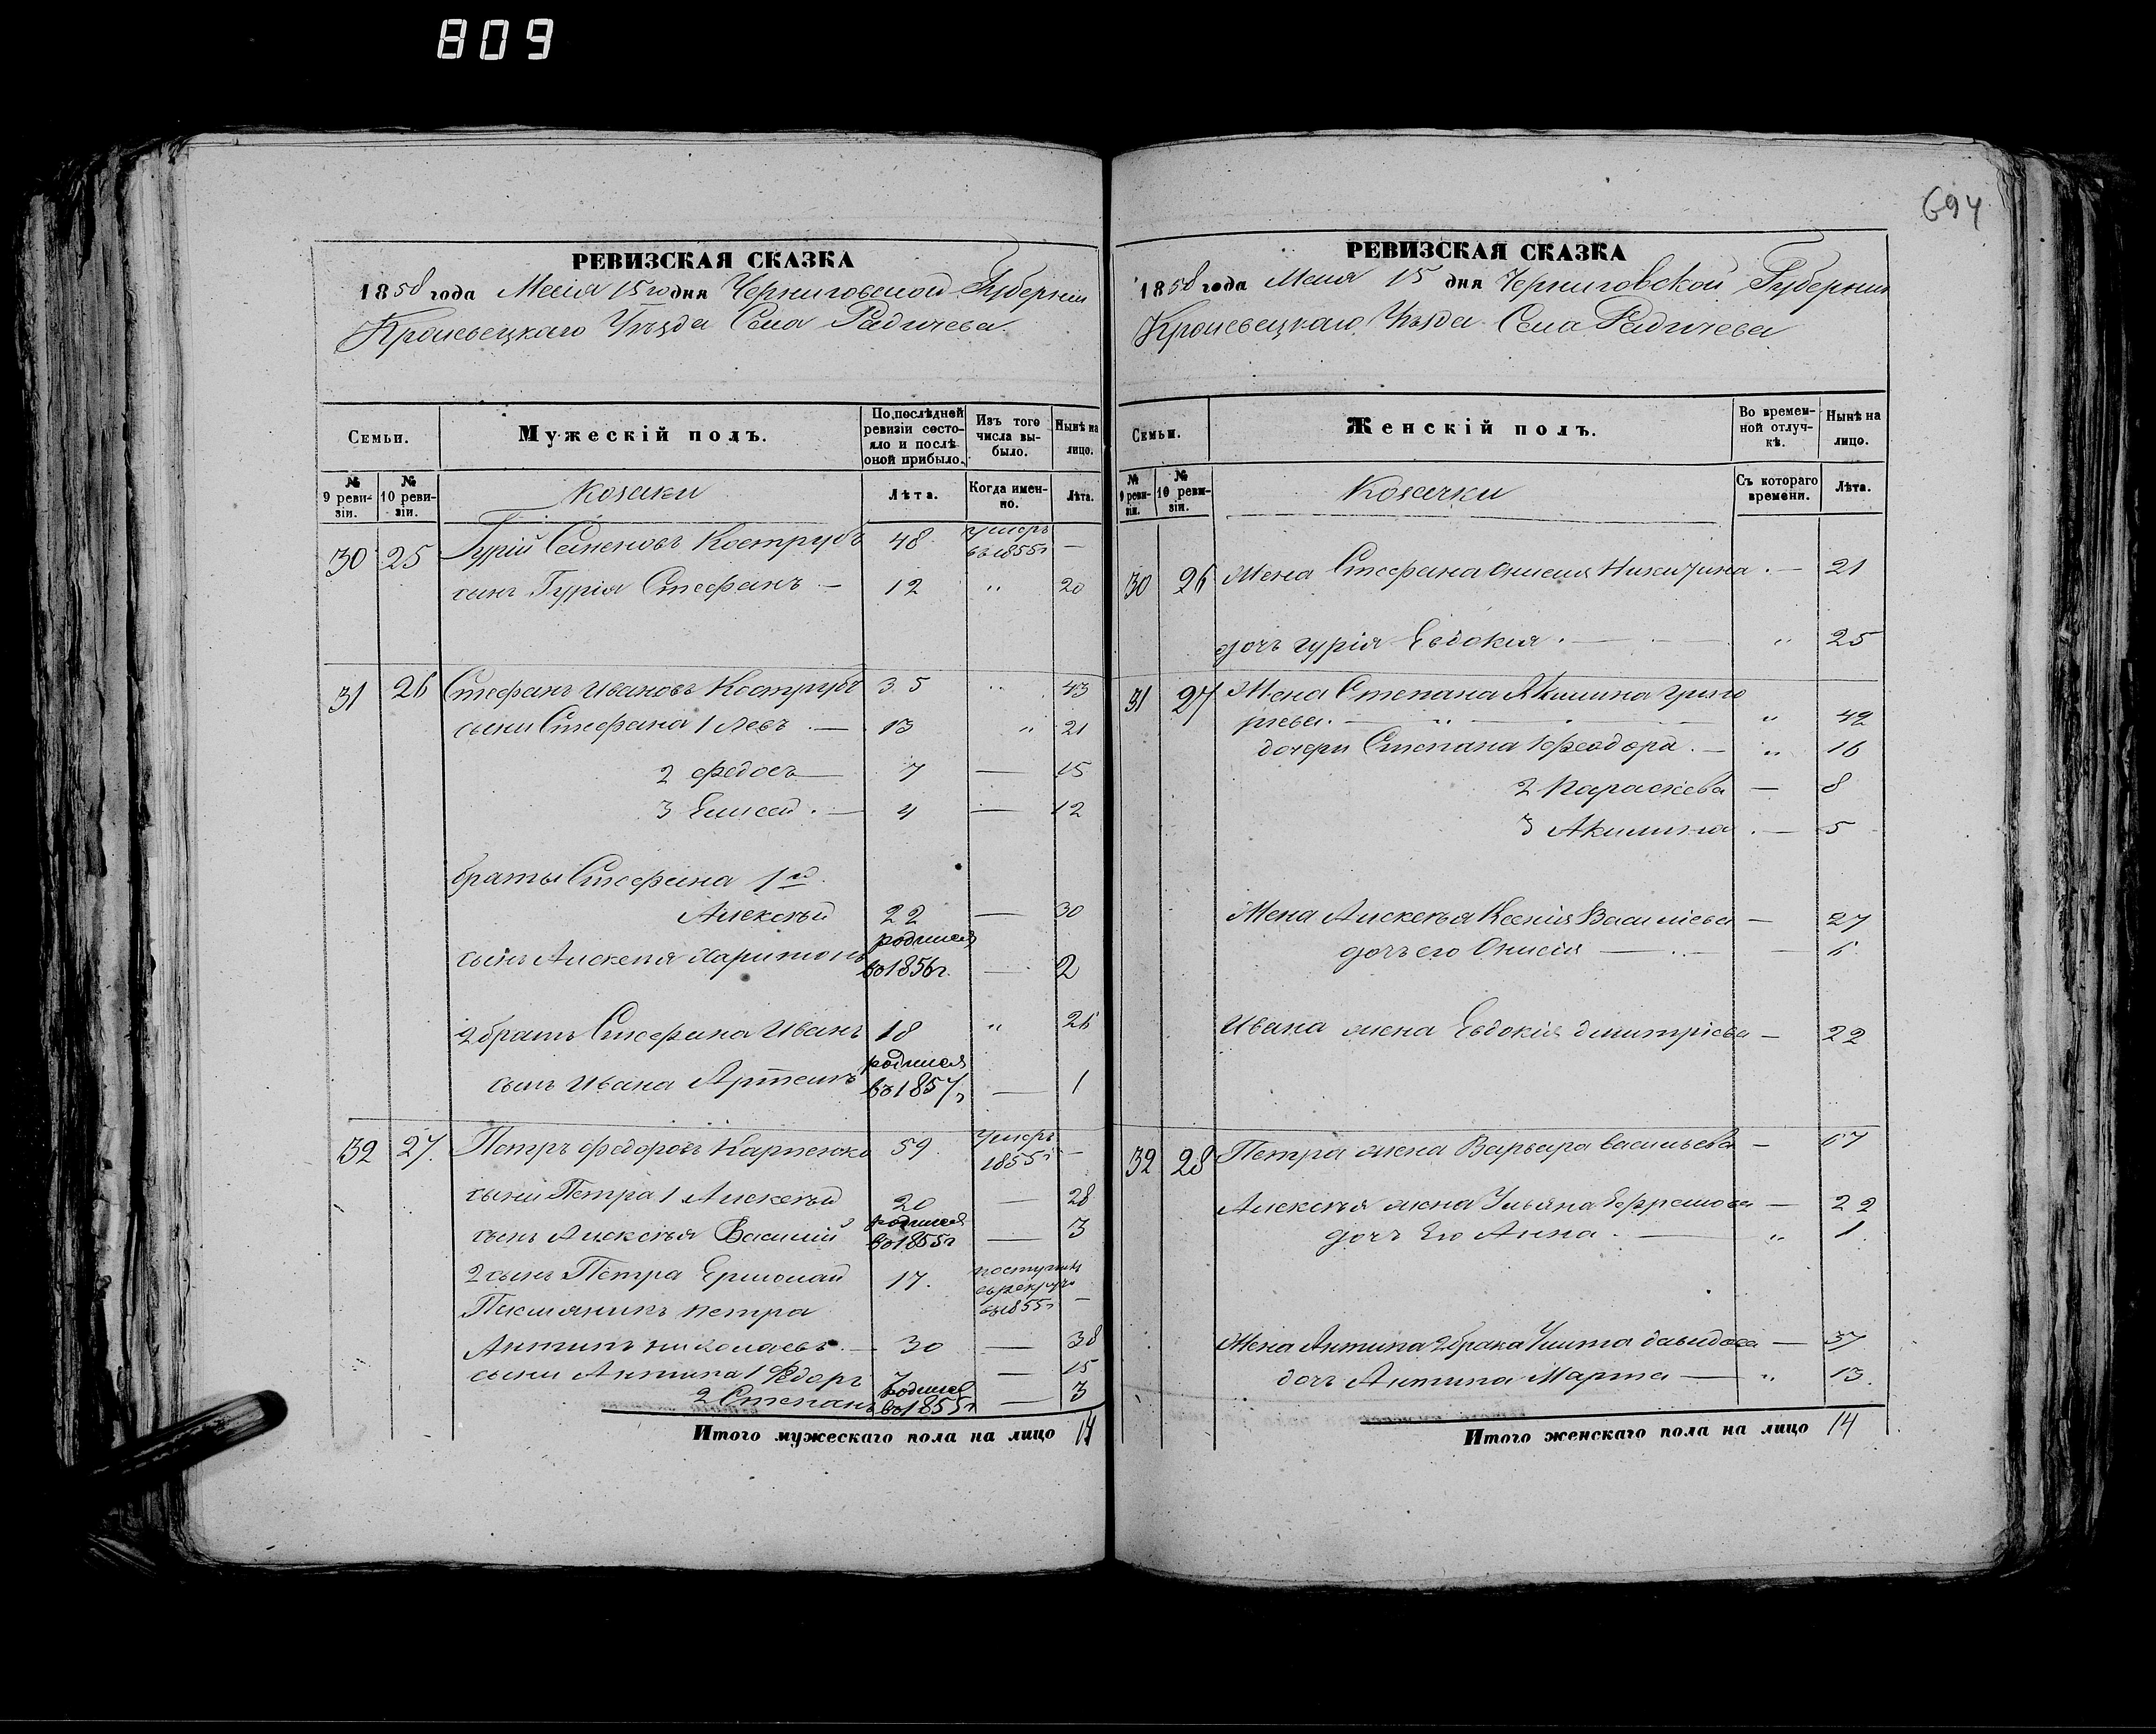 809
694
РЕВИЗСКАЯ СКАЗКА
1858 года Месяца 15го дня Черниговской Губерніи
Кролевецкаго Уѣзда Села Радичева
Семьи.
Мужескій полъ.
По послѣдней ревизіи состояло и послѣ оной прибыло.
Изъ того числа выбыло.
Нынѣ на лицо.
№ 9 ревизіи.
№ 10 ревизіи.
Козаки
Лѣта.
Когда именно.
Лѣта.
30 25 Гурій Семеновъ Кострубъ 48 умеръ въ 1855г —
сынъ Гурія Стефанъ — 12 " 20
31 26 Стефанъ Ивановъ Кострубъ 35 " 43
сыни Стефана 1 Левъ — 13 " 21
2 Федосъ — 7 — 15
3 Елисей — 4 — 12
браты Стефана 1й
Алексѣй 22 — 30
сынъ Алексѣя Харитонъ родился во 1856г. — 2
2 братъ Стефана Иванъ 18 " 26
сынъ Ивана Артемъ родился въ 1857г — 1
32 27. Петръ Федоровъ Карпенко 59. умеръ 1855г —
сыни Петра 1 Алексѣй 20 — 28
сынъ Алексѣя Василий родился во 1855г — 3
2 сынъ Петра Ермолай 17. поступилъ въ рекруты въ 1855г —
Племянникъ Петра
Антипъ Николаевъ — 30 — 38
сыни Антипа 1 Федоръ 7 — 15
2 Степанъ родился во 1855г — 3
Итого мужескаго пола на лицо 11
РЕВИЗСКАЯ СКАЗКА
1858 года 15 дня Черниговской Губерніи
Кролевецкаго Уѣзда Села Радичева
Семьи.
Женскій полъ.
Во временной отлучкѣ.
Нынѣ на лицо.
№ 9 ревизіи.
№ 10 ревизіи.
Козачки
Съ котораго времени.
Лѣта.
30 26 Жена Стефана Никитина — 21
дочь Гурія Евдокия — " 25
31 27 Жена Степана Акилина Григо
рьева — " 42
дочери Степана 1 Феодора — " 16
2 Параскева — 8
3 Акилина — 5
Жена Алексѣя Ксенія Василіева — 27
дочь его Онисія — 6
Ивана жена Евдокія Дмитріева — 22
32 28 Петра жена Варвара Васильева — 67
Алексѣя жена Ульяна Ефремова — 22
дочь Его Анна — " 1
Жена Антипа 2 брака Улита Давидова — 37
дочь Антипа Марта — " 13.
Итого женскаго пола на лицо 14